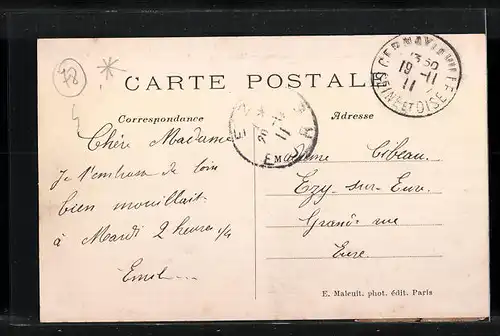 78
CARTE POSTALE
Correspondance
Adresse
SEINE ET OISE
13 50
19 - 11
11
EZY
EURE
20 - 11
11
Chère Madame
Je t'embrasse de loin
bien
à Mardi 2 heures 1/4
Madame Cibeau
Ezy-sur-Eure
Grande rue
Eure.
E. Malcuit. phot. édit. Paris